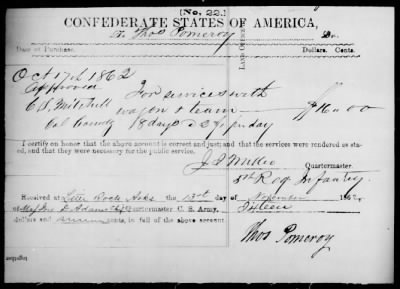 [No. 22.]
CONFEDERATE STATES OF AMERICA,
To Thos Pomeroy Dr.
Date of Purchase. Dollars. Cents.
Oct 17th 1862
Approved For services with
C B Mitchell wagon & team
18 days @ 2 pr day 00
I certify on honor that the above account is correct and just; and that the services were rendered as
stated, and that they were necessary for the public service.
Quartermaster.
Reg Infantry
Received at Little Rock Arks the 13th day of November 186
of Quartermaster C. S. Army,
dollars and cents, in full of the above account.
Thos Pomeroy